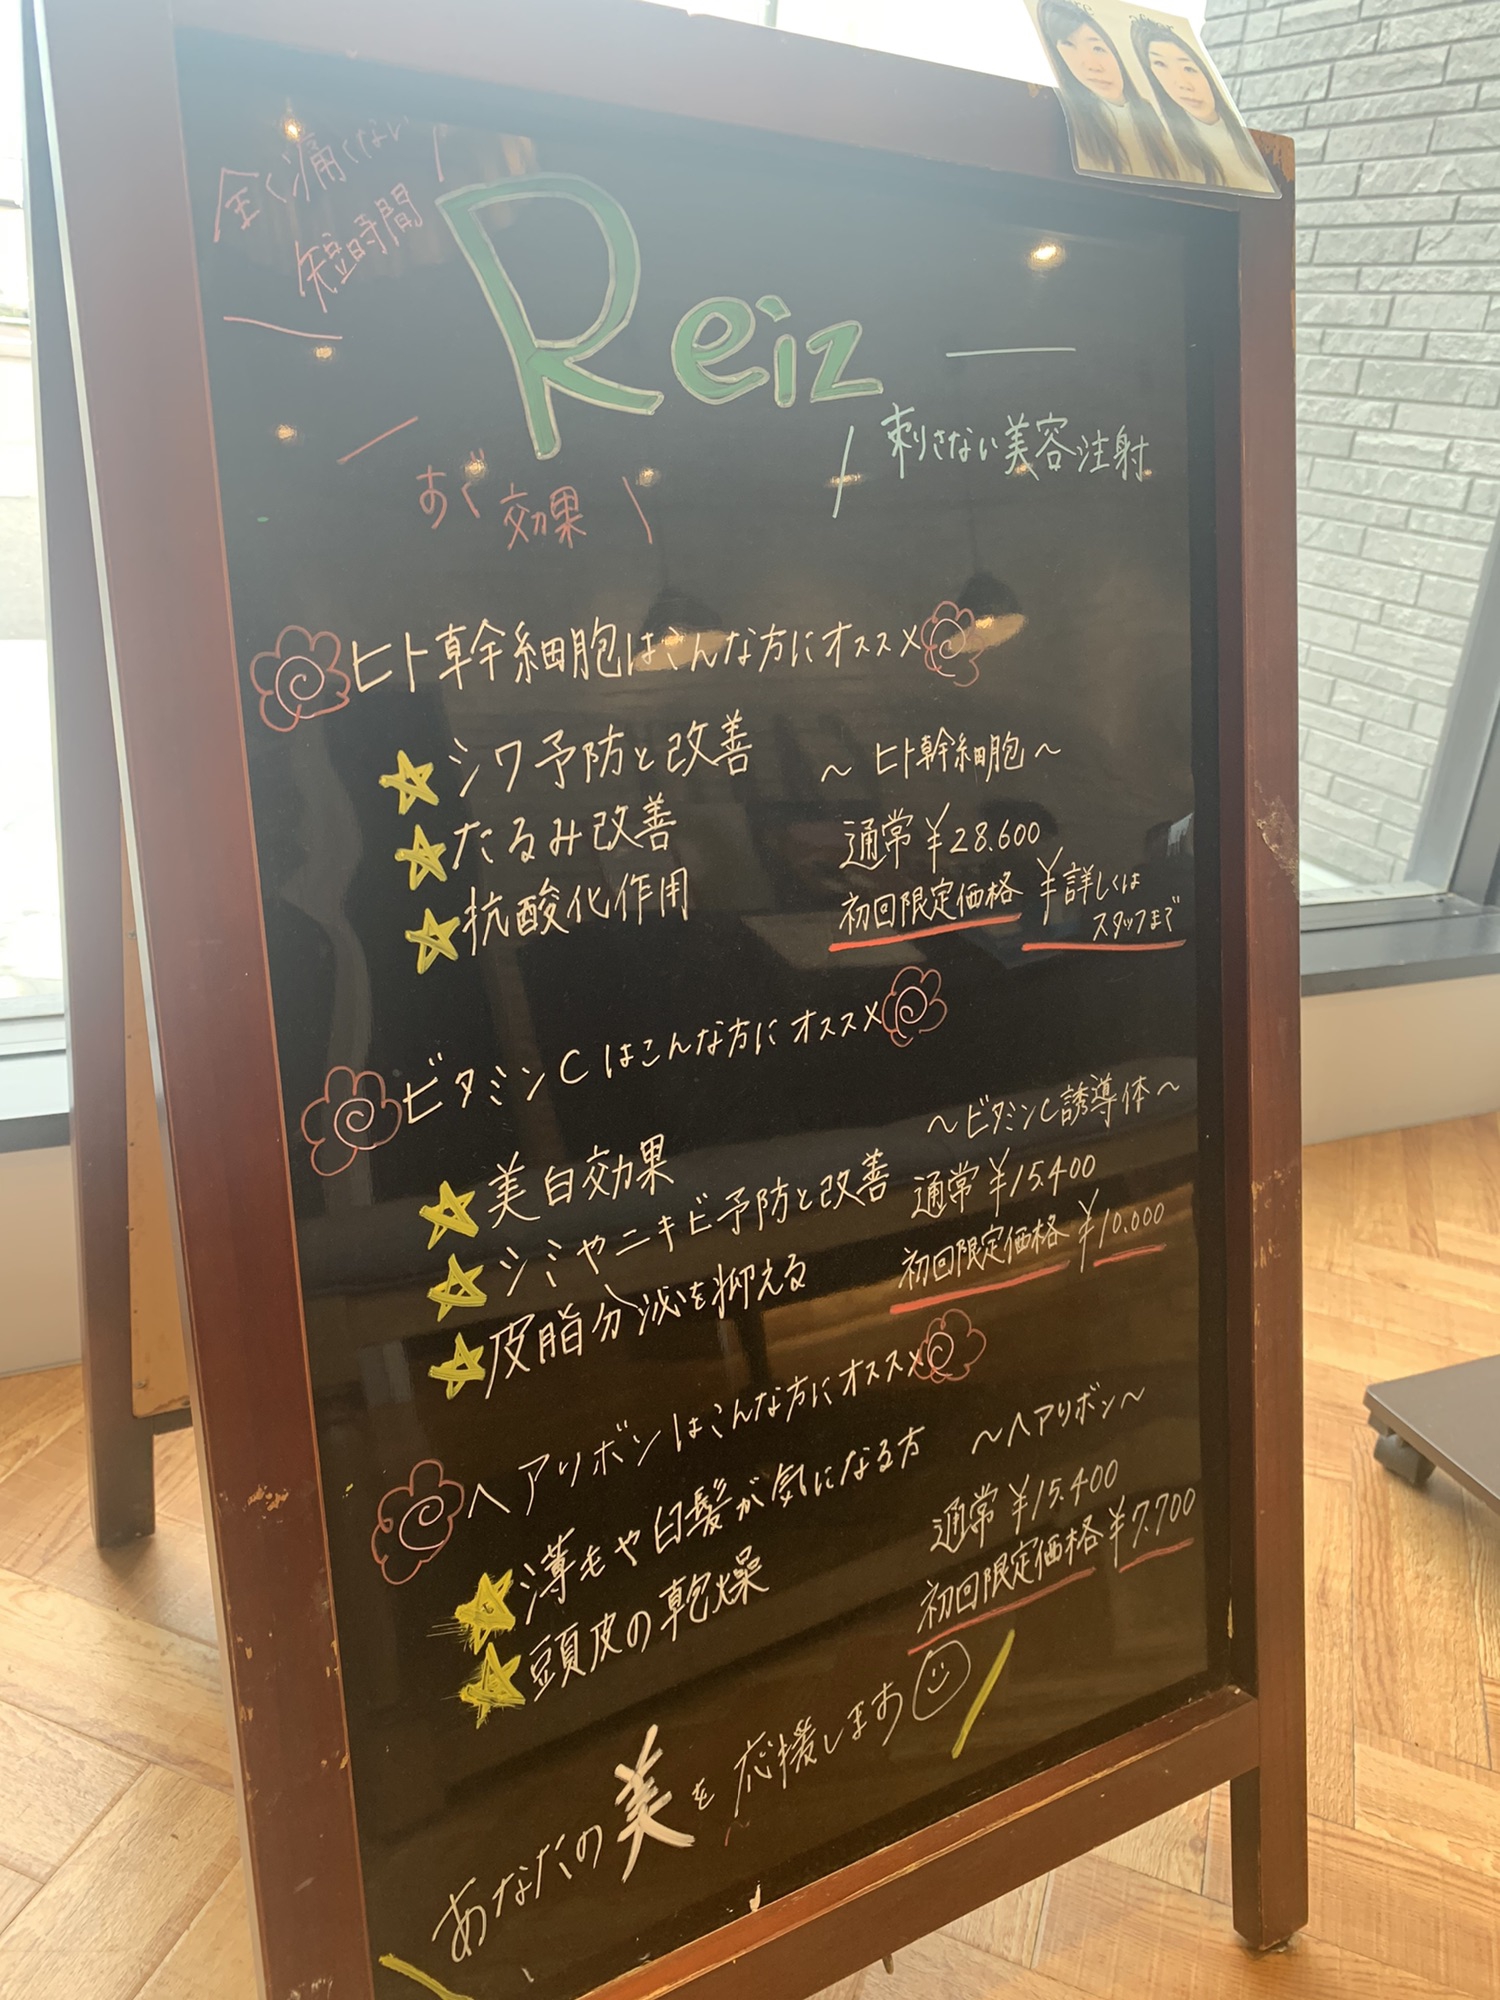 before after
全く痛くない
短時間
Reiz
すぐ効果
刺さない美容注射
ヒト幹細胞はこんな方にオススメ
シワ予防と改善
たるみ改善
抗酸化作用
～ヒト幹細胞～
通常¥28.600
初回限定価格 ¥詳しくは
スタッフまで
ビタミンCはこんな方にオススメ
美白効果
シミやニキビ予防と改善
皮脂分泌を抑える
～ビタミンC誘導体～
通常¥15.400
初回限定価格¥10.000
ヘアリボンはこんな方にオススメ
薄毛や白髪が気になる方
頭皮の乾燥
～ヘアリボン～
通常¥15.400
初回限定価格¥7.700
あなたの美を応援します